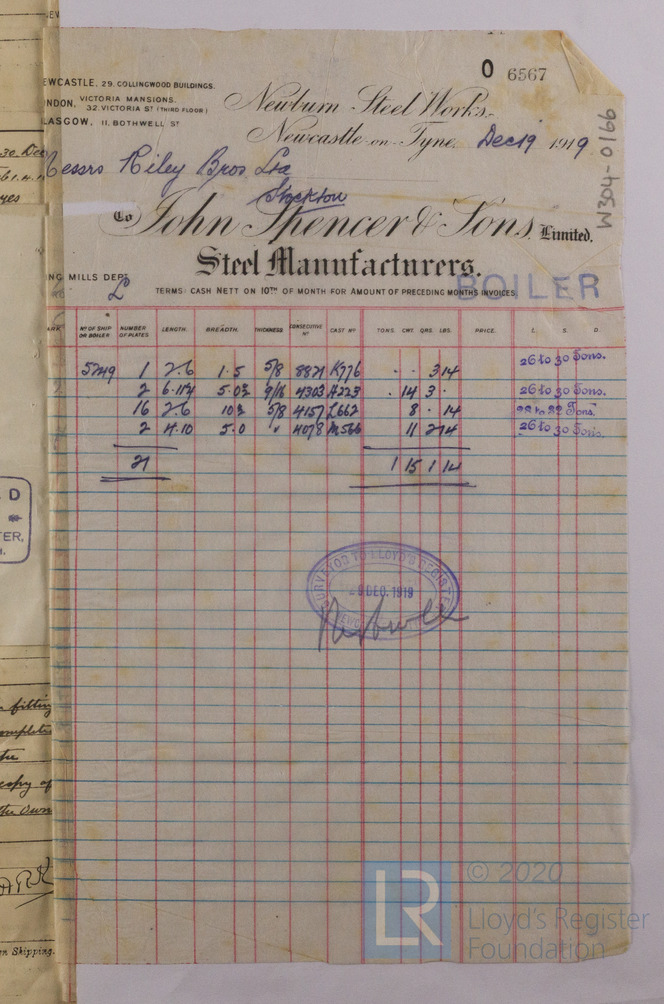 O 6567
EWCASTLE, 29. COLLINGWOOD BUILDINGS.
ONDON, VICTORIA MANSIONS.
32. VICTORIA ST (THIRD FLOOR)
LASGOW, 11. BOTHWELL ST
Newburn Steel Works,
Newcastle-on-Tyne, Dec 19 1919
W304-0166
essrs Riley Bros Ltd
Stockton
To John Spencer & Sons, Limited.
Steel Manufacturers.
ING MILLS DEPT
L
BOILER
TERMS: CASH NETT ON 10TH OF MONTH FOR AMOUNT OF PRECEDING MONTHS INVOICES.
ARK Nº OF SHIP OR BOILER NUMBER OF PLATES LENGTH. BREADTH. THICKNESS CONSECUTIVE Nº CAST Nº TONS CWT. QRS. LBS. PRICE. £. S. D.
5249 1 2.6 1.5 5/8 8821 K776 . . 3 14 26 to 30 Tons.
2 9/16 4303 A223 . 14 3 . 26 to 30 Tons.
16 2.6 5/8 4157 L662 8 . 14 Tons.
2 4.10 5.0 " 4078 M566 11 2 14 26 to 30 Tons.
21 1 15 1 14
SURVEYOR TO LLOYD'S REGISTER
DEC. 1919
D
TER,
30. Dec
yes
fitting
the
copy of
the Own
en Shipping.
LR
© 2020
Lloyd's Register
Foundation